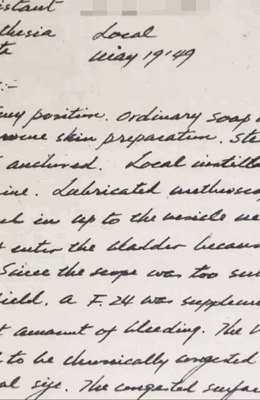 istant
thesia Local
te May 19 '49
:-
position. Ordinary soap
skin preparation. Ste
anchored. Local instilla
ine. Lubricated urethrosco
in up to the vesicle ne
enter the bladder becaus
Since the scope was too sm
field. A F. 24 was suppleme
t amount of bleeding. The
to be chronically congested
size. The congested surfac